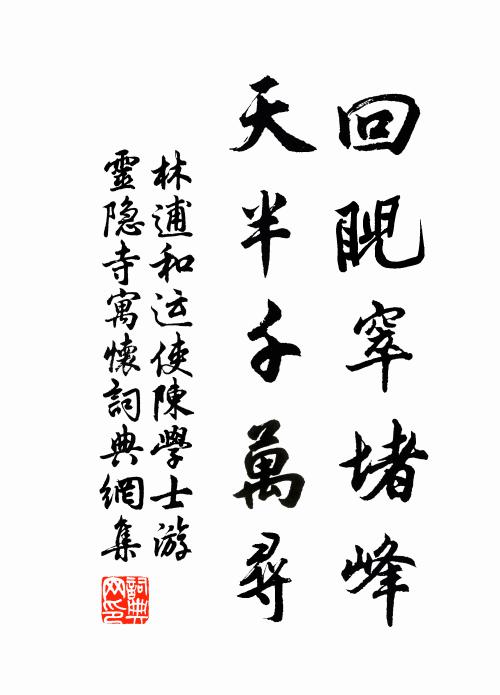 回睨窣堵峰
天半千萬尋
林逋和运使陳學士游
靈隐寺寓懷詞典網集
詞典网印